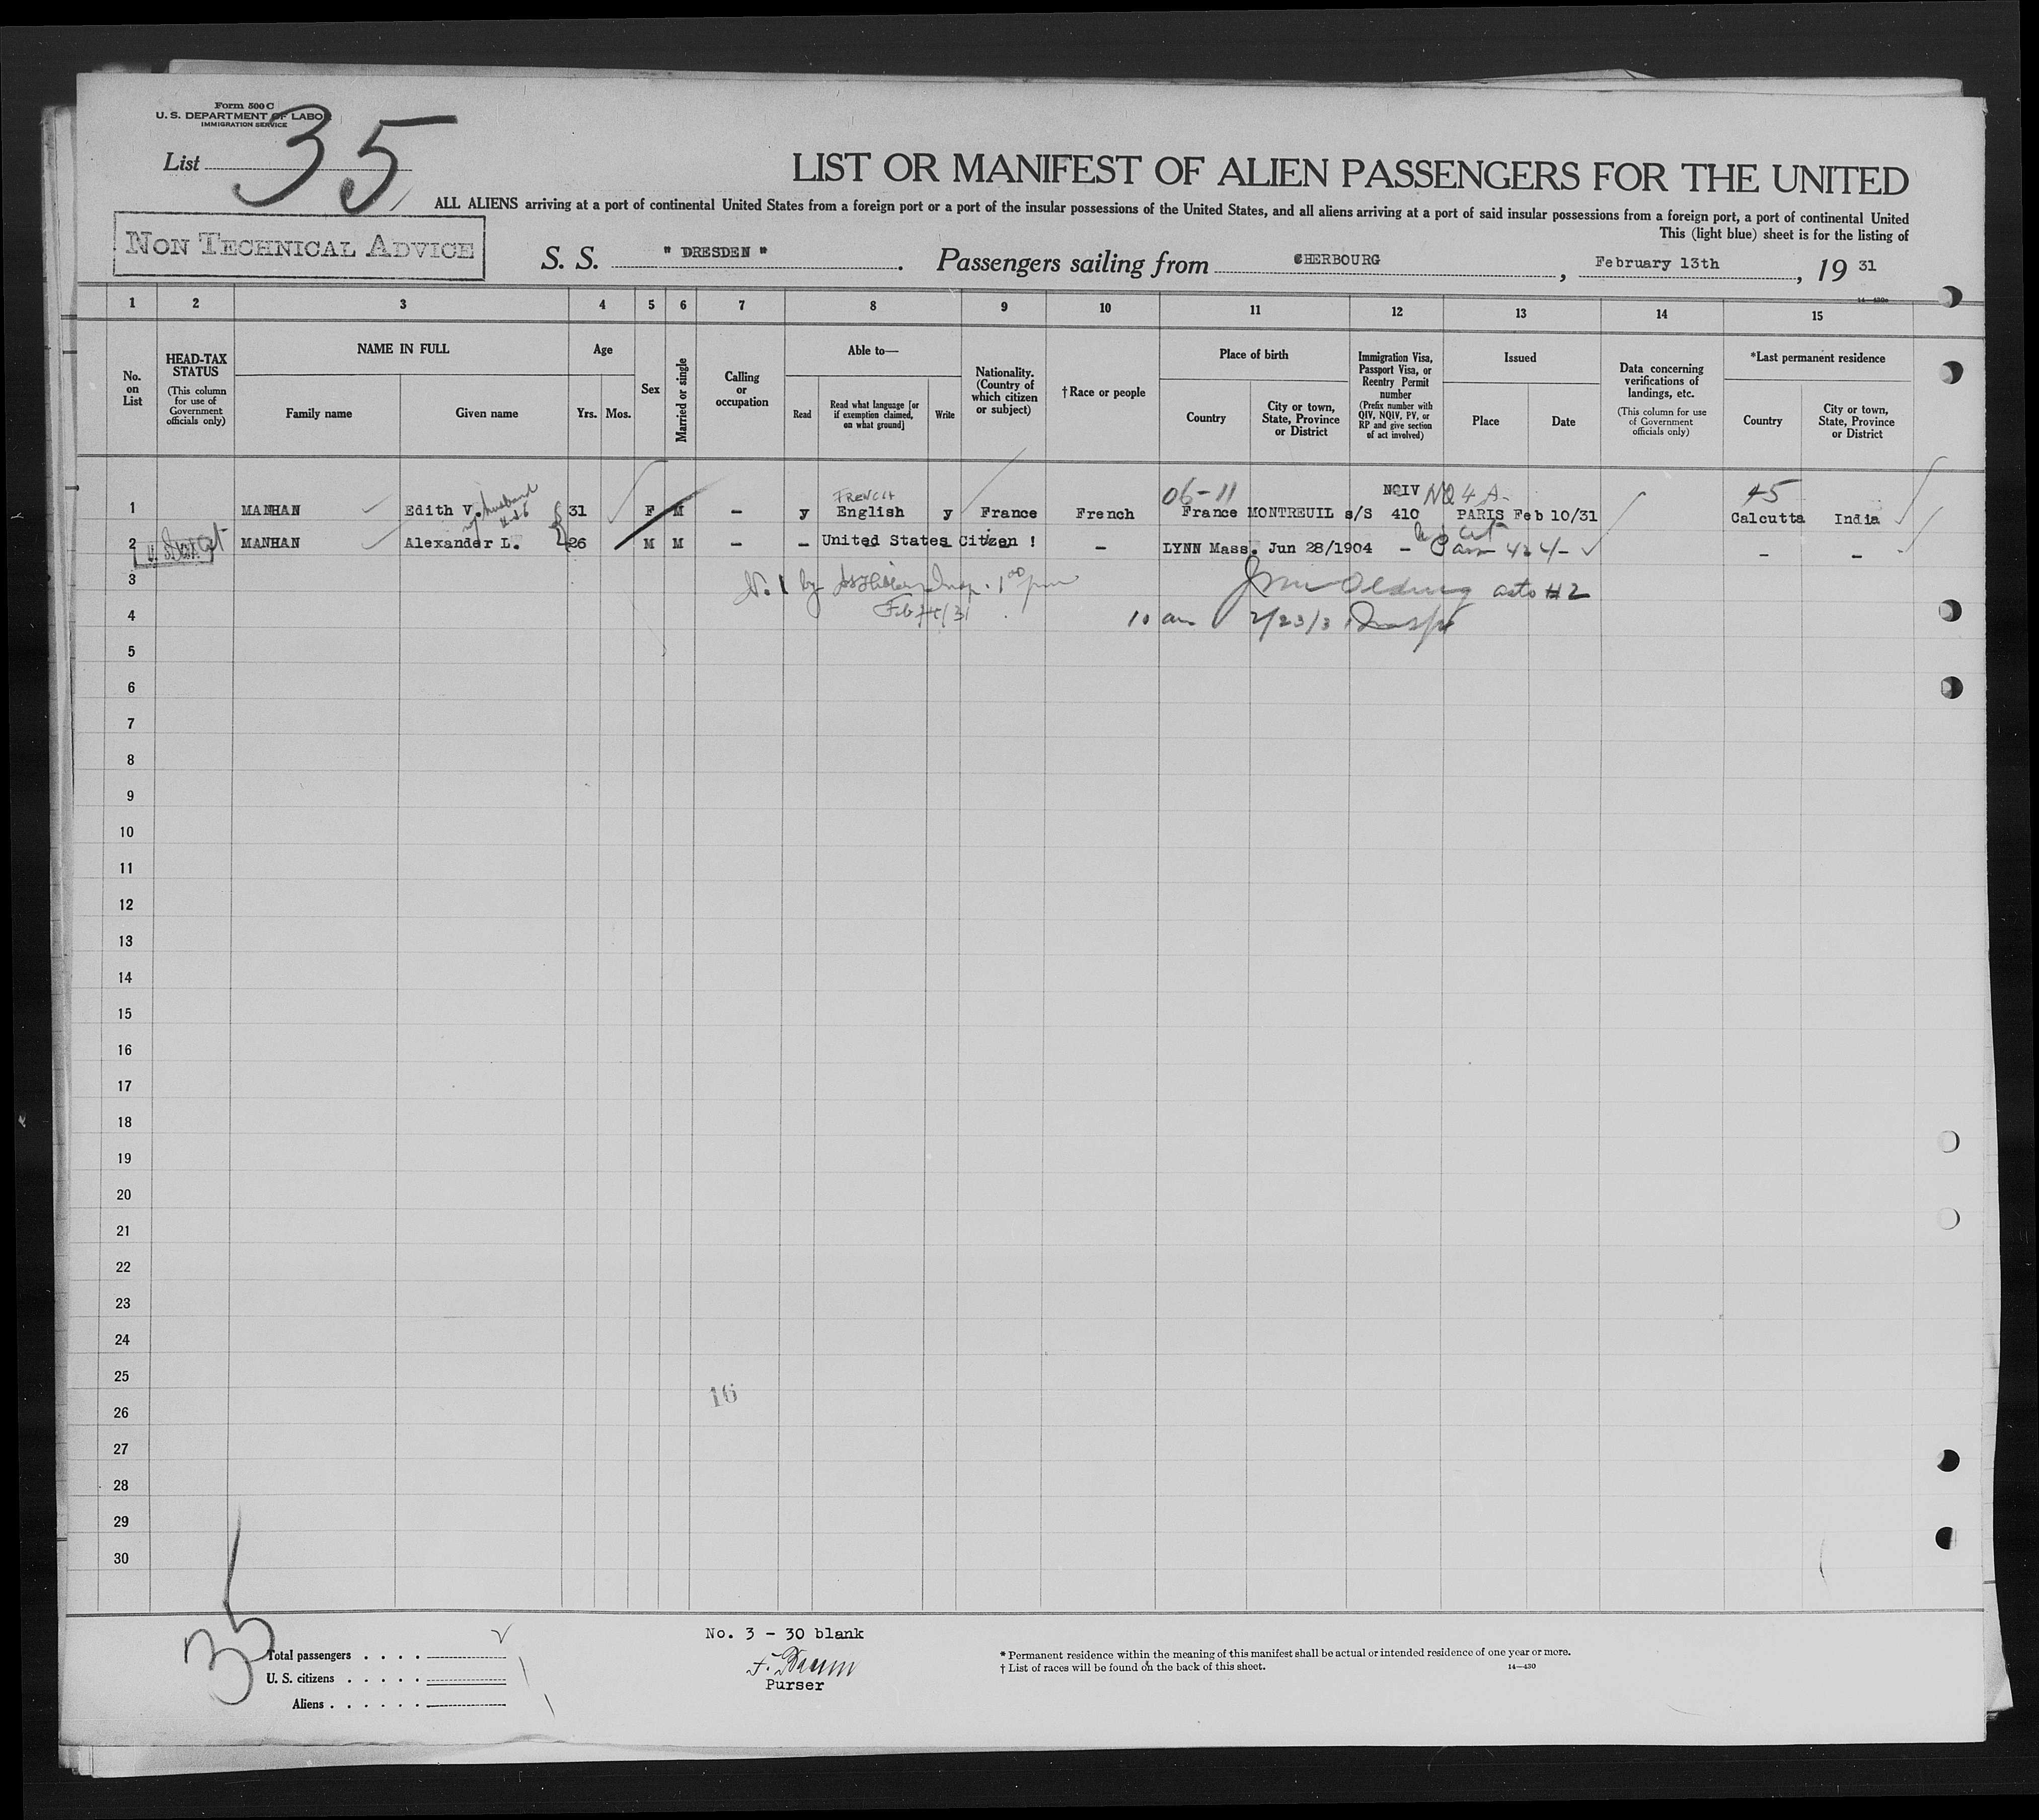 Form 500 C
U. S. DEPARTMENT OF LABOR
IMMIGRATION SERVICE
List 35
LIST OR MANIFEST OF ALIEN PASSENGERS FOR THE UNITED
ALL ALIENS arriving at a port of continental United States from a foreign port or a port of the insular possessions of the United States, and all aliens arriving at a port of said insular possessions from a foreign port, a port of continental United
This (light blue) sheet is for the listing of
NON TECHNICAL ADVICE
S. S. " DRESDEN " . Passengers sailing from CHERBOURG , February 13th , 19 31
14—430a
1 2 3 4 5 6 7 8 9 10 11 12 13 14 15
No. on List
HEAD-TAX STATUS
(This column for use of Government officials only)
NAME IN FULL
Family name
Given name
Age
Yrs.
Mos.
Sex
Married or single
Calling or occupation
Able to—
Read
Read what language [or if exemption claimed, on what ground]
Write
Nationality. (Country of which citizen or subject)
† Race or people
Place of birth
Country
City or town, State, Province or District
Immigration Visa, Passport Visa, or Reentry Permit number
(Prefix number with QIV, NQIV, PV, or RP and give section of act involved)
Issued
Place
Date
Data concerning verifications of landings, etc.
(This column for use of Government officials only)
*Last permanent residence
Country
City or town, State, Province or District
husband
FRENCH 06-11 NQIV NQ 4 A- 45
1 MANHAN Edith V. 31 F M - y English y France French France MONTREUIL s/S 410 PARIS Feb 10/31 Calcutta India
2 MANHAN Alexander L. 26 M M - - United States Citizen ! - LYNN Mass. Jun 28/1904 - - -
3 No. 1 by Insp. 1 00 pm #2
Feb 24/31
4 10 am 2/23/31
5
6
7
8
9
10
11
12
13
14
15
16
17
18
19
20
21
22
23
24
25
16
26
27
28
29
30
35
No. 3 - 30 blank
Total passengers . . . .
U. S. citizens . . . . .
Aliens . . . . . .
Purser
* Permanent residence within the meaning of this manifest shall be actual or intended residence of one year or more.
† List of races will be found on the back of this sheet.
14—430